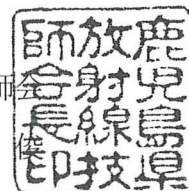 鹿児島県
放射線技
師会長印
俊